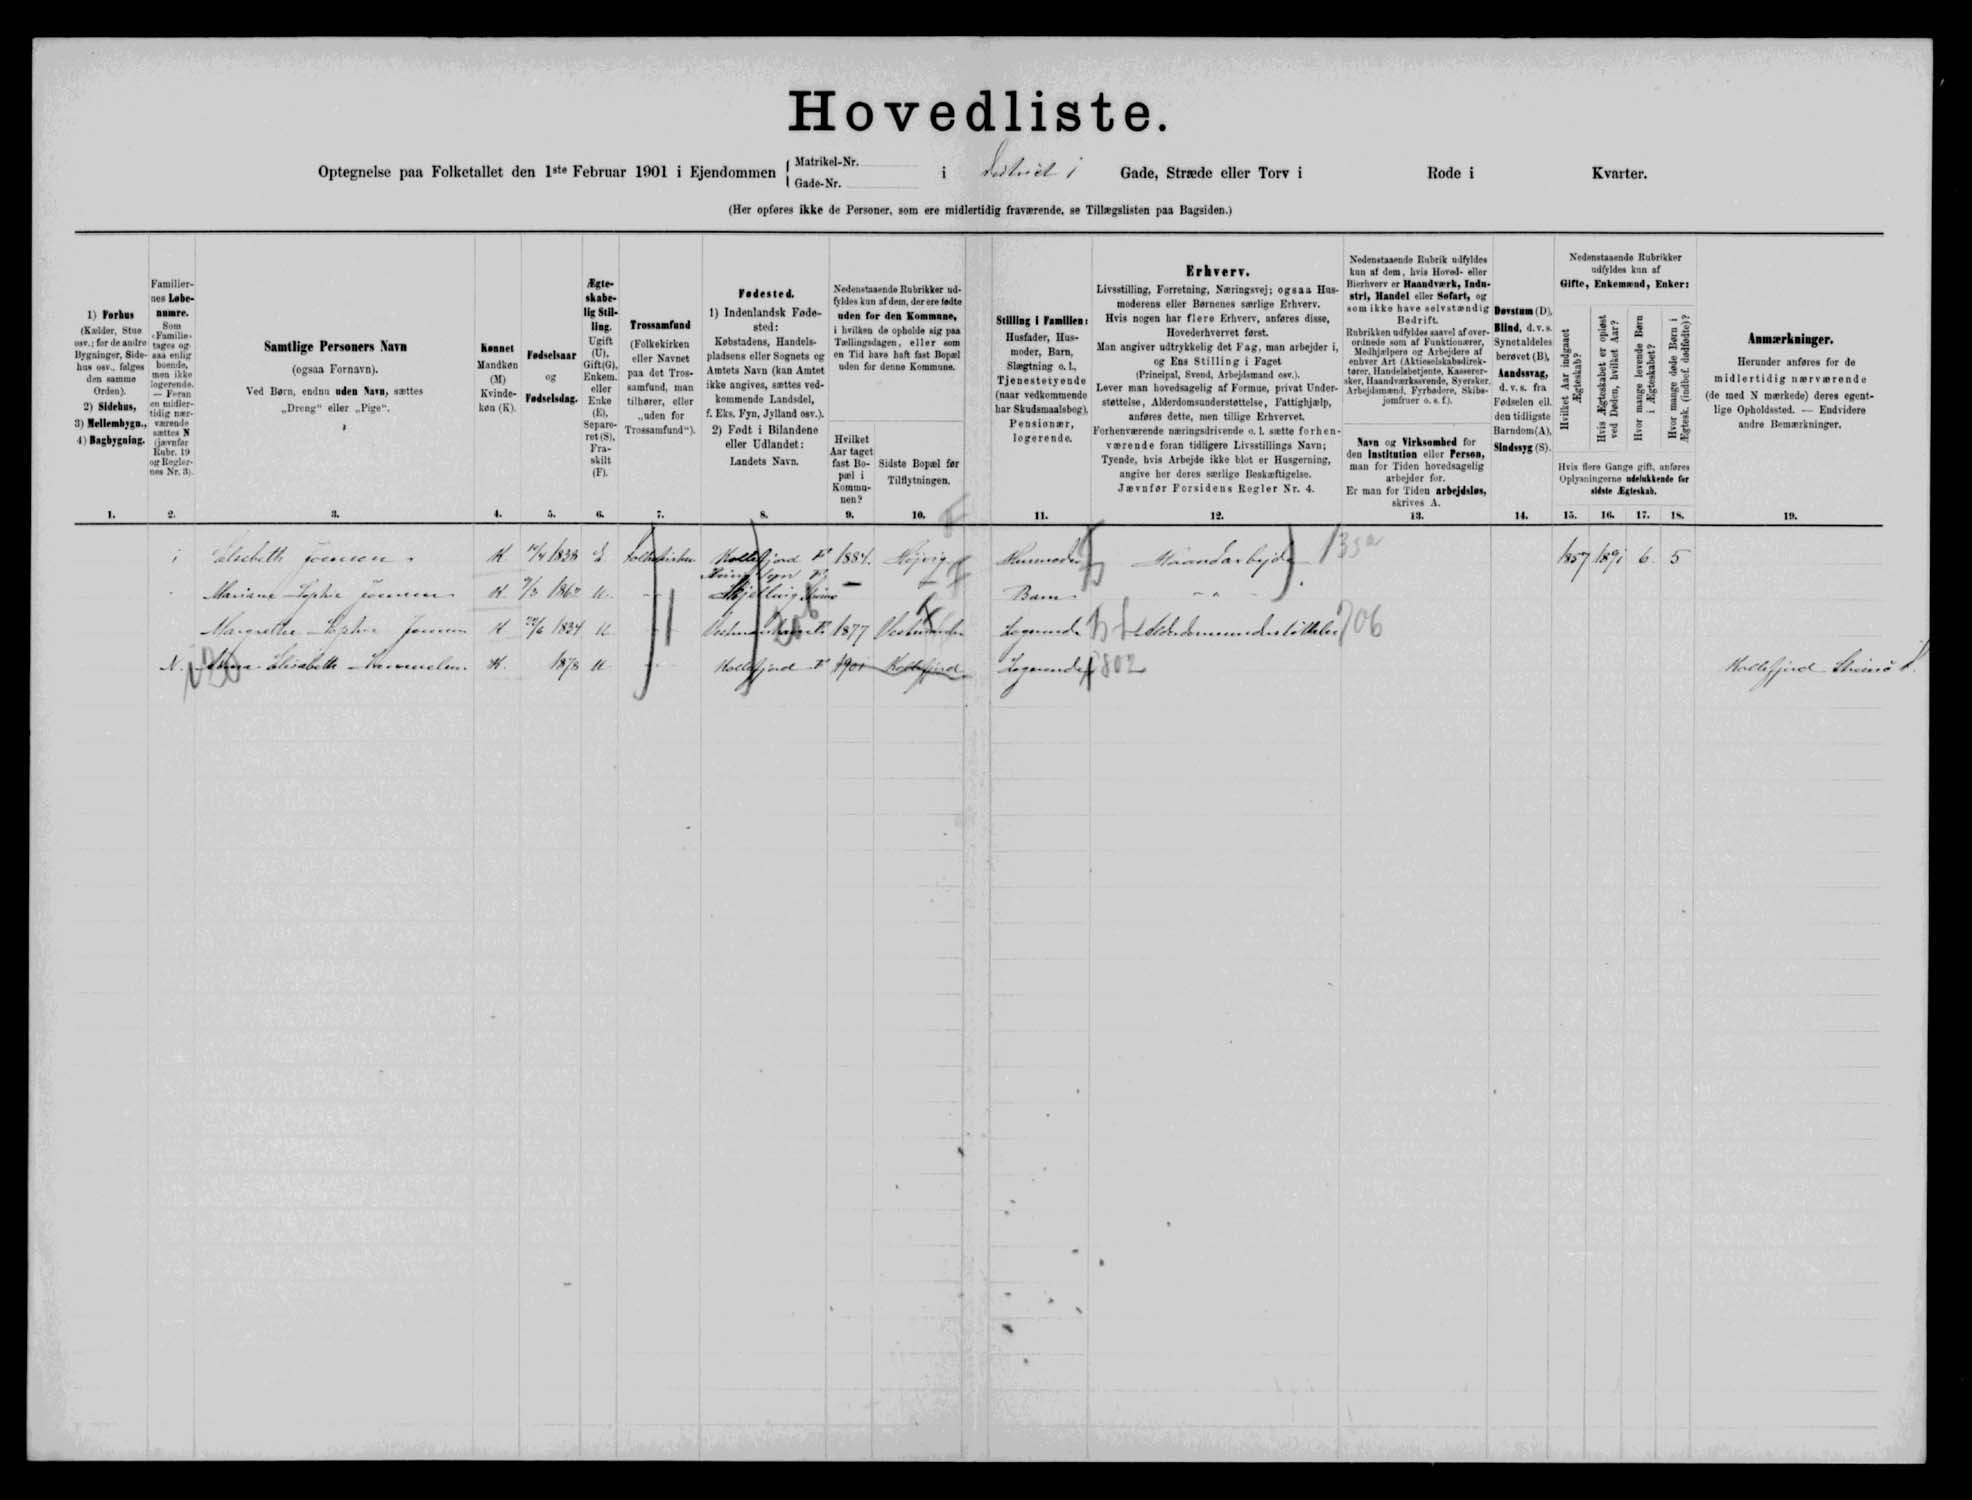 Hovedliste.
Optegnelse paa Folketallet den 1ste Februar 1901 i Ejendommen { Matrikel-Nr. Gade-Nr. i Distrikt 1 Gade, Stræde eller Torv i Rode i Kvarter.
(Her opføres ikke de Personer, som ere midlertidig fraværende, se Tillægslisten paa Bagsiden.)
1) Forhus
(Kælder, Stue
osv.; for de andre
Bygninger, Side-
hus osv., følges
den samme
Orden).
2) Sidehus,
3) Mellembygn.,
4) Bagbygning.
Familier-
nes Løbe-
numre.
Som
„Familie“
tages og-
saa enlig
boende,
men ikke
logerende.
— Foran
en midler-
tidig nær-
værende
sættes N
(jævnfør
Rubr. 19
og Regler-
nes Nr. 3).
Samtlige Personers Navn
(ogsaa Fornavn).
Ved Børn, endnu uden Navn, sættes
„Dreng“ eller „Pige“.
Kønnet
Mandkøn
(M)
Kvinde-
køn (K).
Fødselsaar
og
Fødselsdag.
Ægte-
skabe-
lig Stil-
ling.
Ugift
(U),
Gift(G),
Enkem.
eller
Enke
(E),
Separe-
ret (S),
Fra-
skilt
(F).
Trossamfund
(Folkekirken
eller Navnet
paa det Tros-
samfund, man
tilhører, eller
„uden for
Trossamfund“).
Fødested.
1) Indenlandsk Føde-
sted:
Købstadens, Handels-
pladsens eller Sognets og
Amtets Navn (kan Amtet
ikke angives, sættes ved-
kommende Landsdel,
f. Eks. Fyn, Jylland osv.).
2) Født i Bilandene
eller Udlandet:
Landets Navn.
Nedenstaaende Rubrikker ud-
fyldes kun af dem, der ere fødte
uden for den Kommune,
i hvilken de opholde sig paa
Tællingsdagen, eller som
en Tid have haft fast Bopæl
uden for denne Kommune.
Hvilket
Aar taget
fast Bo-
pæl i
Kommu-
nen?
Sidste Bopæl før
Tilflytningen.
Stilling i Familien:
Husfader, Hus-
moder, Barn,
Slægtning o. l.,
Tjenestetyende
(naar vedkommende
har Skudsmaalsbog),
Pensionær,
logerende.
Erhverv.
Livsstilling, Forretning, Næringsvej; ogsaa Hus-
moderens eller Børnenes særlige Erhverv.
Hvis nogen har flere Erhverv, anføres disse,
Hovederhvervet først.
Man angiver udtrykkelig det Fag, man arbejder i,
og Ens Stilling i Faget
(Principal, Svend, Arbejdsmand osv.).
Lever man hovedsagelig af Formue, privat Under-
støttelse, Alderdomsunderstøttelse, Fattighjælp,
anføres dette, men tillige Erhvervet.
Forhenværende næringsdrivende o. l. sætte forhen-
værende foran tidligere Livsstillings Navn;
Tyende, hvis Arbejde ikke blot er Husgerning,
angive her deres særlige Beskæftigelse.
Jævnfør Forsidens Regler Nr. 4.
Nedenstaaende Rubrik udfyldes
kun af dem, hvis Hoved- eller
Bierhverv er Haandværk, Indu-
stri, Handel eller Søfart, og
som ikke have selvstændig
Bedrift.
Rubrikken udfyldes saavel af over-
ordnede som af Funktionærer,
Medhjælpere og Arbejdere af
enhver Art (Aktieselskabsdirek-
tører, Handelsbetjente, Kasserer-
sker, Haandværkssvende, Syersker,
Arbejdsmænd, Fyrbødere, Skibs-
jomfruer o. s. f.).
Navn og Virksomhed for
den Institution eller Person,
man for Tiden hovedsagelig
arbejder for.
Er man for Tiden arbejdsløs,
skrives A.
Døvstum (D),
Blind, d. v. s.
Synet aldeles
berøvet (B),
Aandssvag,
d. v. s. fra
Fødselen ell.
den tidligste
Barndom(A),
Sindssyg (S).
Nedenstaaende Rubrikker
udfyldes kun af
Gifte, Enkemænd, Enker:
Hvilket Aar indgaaet
Ægteskab?
Hvis Ægteskabet er opløst
ved Døden, hvilket Aar?
Hvor mange levende Børn
i Ægteskabet?
Hvor mange døde Børn i
Ægtesk. (indbef. dødfødte)?
Hvis flere Gange gift, anføres
Oplysningerne udelukkende for
sidste Ægteskab.
Anmærkninger.
Herunder anføres for de
midlertidig nærværende
(de med N mærkede) deres egent-
lige Opholdssted. — Endvidere
andre Bemærkninger.
1. 2. 3. 4. 5. 6. 7. 8. 9. 10. 11. 12. 13. 14. 15. 16. 17. 18. 19.
1 Elsebeth Joensen K 1838 E Folkekirken Kollefjord 1884. Højvig Husmoder Haandarbejde 1857 1891 6 5
Mariane Sophie Joensen K. 1862 U. — Barn — „ —
Margrethe Sophie Joensen K 1834 U Vestmanhavn 1877 Logerende Alderdomsunderstøttelse 706
N. Anna Elisabeth Samuelsen K. 1878 U Kollefjord 1901 Kollefjord Logerende 802 Kollefjord Strømø